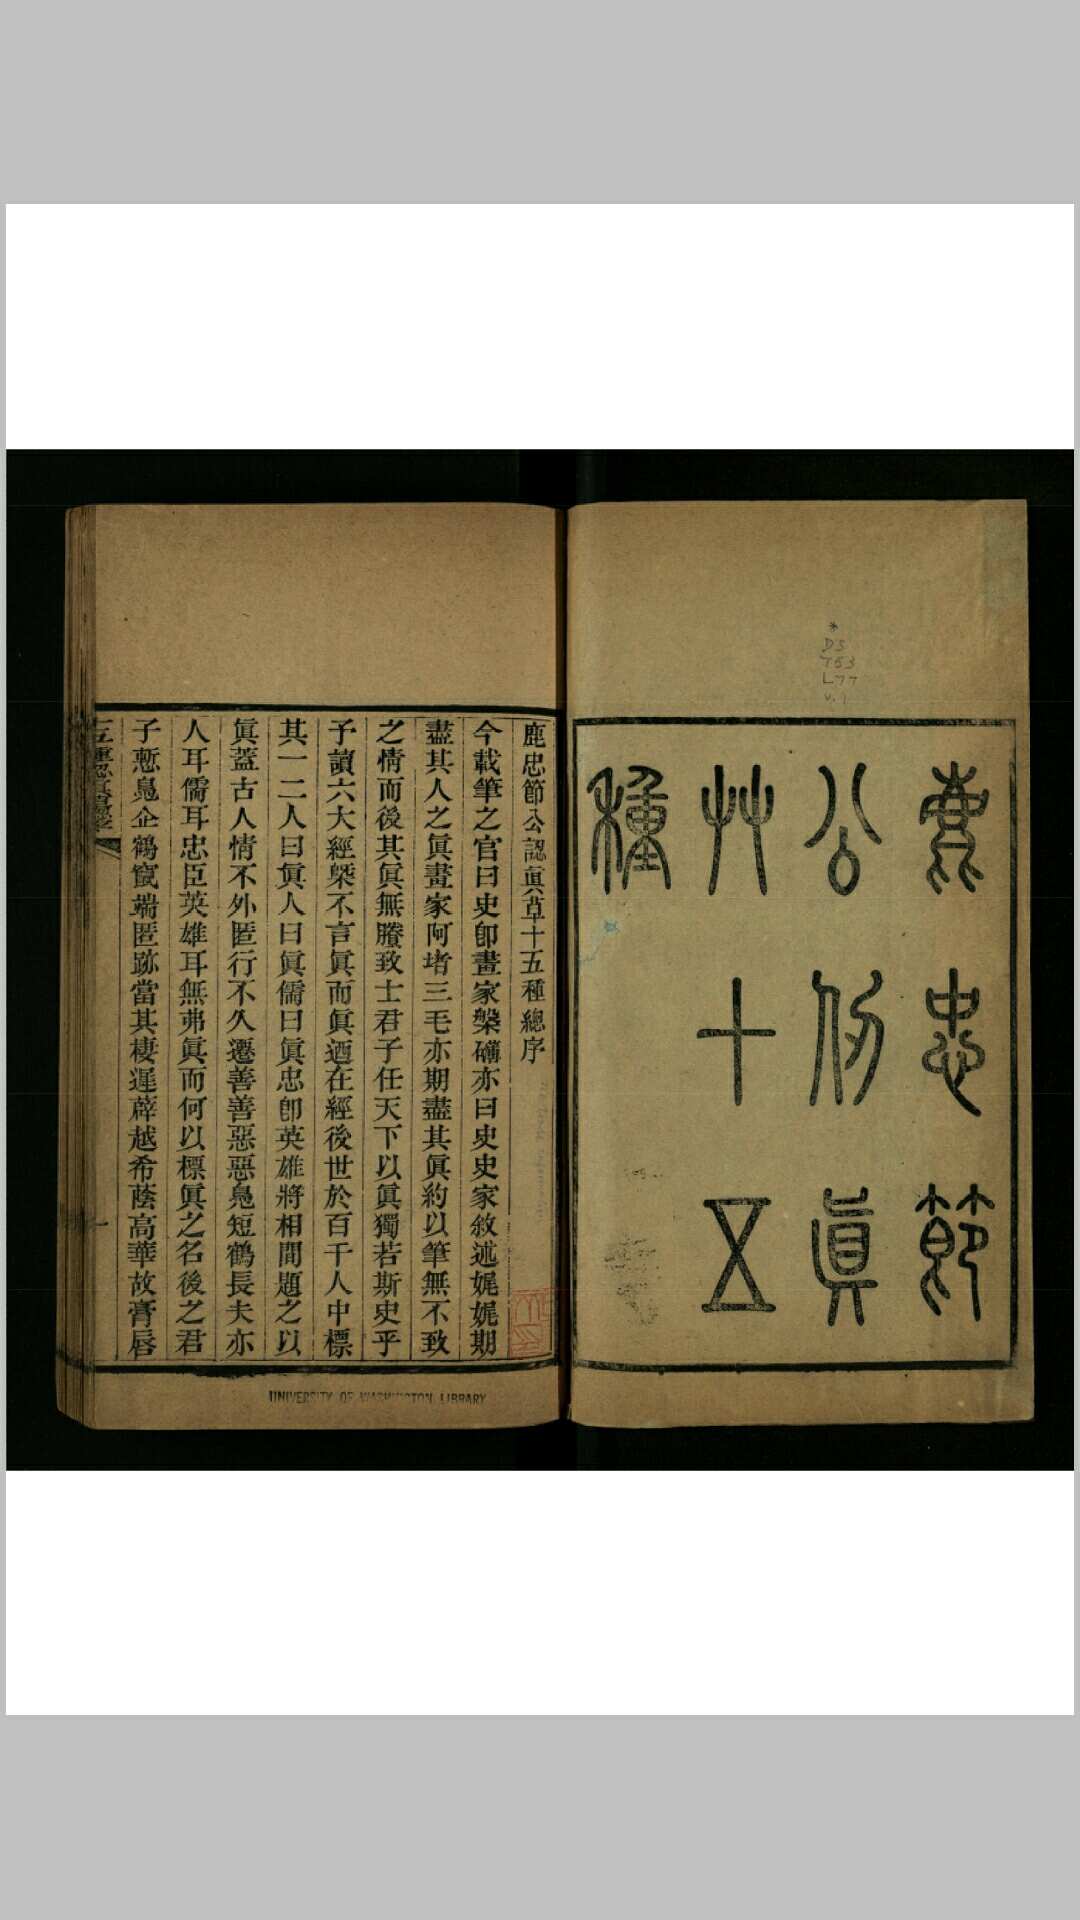 鹿忠節
公認眞
艸十五
種
*
DS
753
L77
v.1
鹿忠節公認眞草十五種總序
今載筆之官曰史卽畫家槃礴亦曰史史家敘述娓娓期
盡其人之眞畫家阿堵三毛亦期盡其眞約以筆無不致
之情而後其眞無賸致士君子任天下以眞獨若斯史乎
予讀六大經槩不言眞而眞迺在經後世於百千人中標
其一二人曰眞人曰眞儒曰眞忠卽英雄將相間題之以
眞蓋古人情不外匿行不久遷善善惡惡鳧短鶴長夫亦
人耳儒耳忠臣英雄耳無弗眞而何以標眞之名後之君
子慙鳧企鶴竄端匿跡當其棲遲薜越希蔭高華故膏唇
一
UNIVERSITY OF WASHINGTON LIBRARY